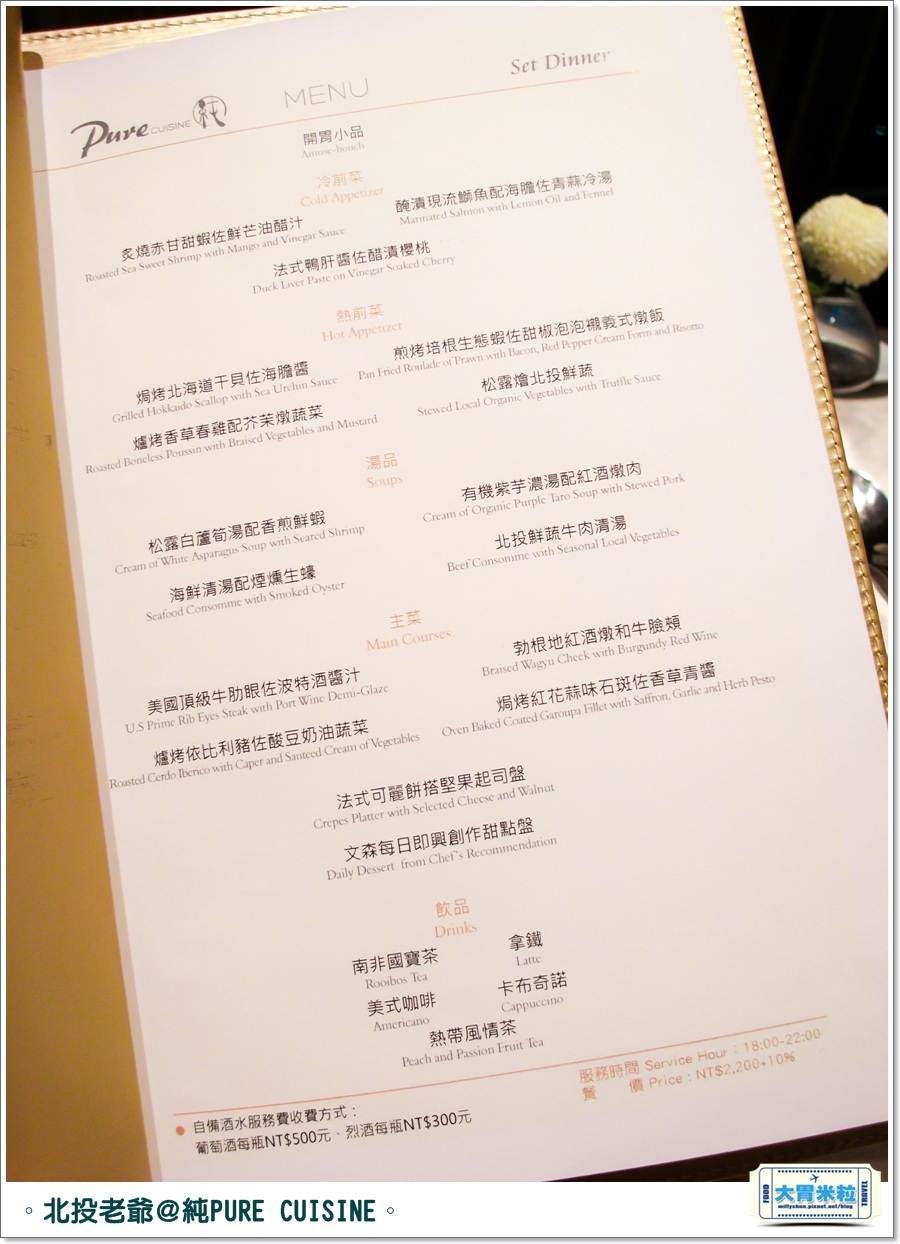 Pure CUISINE 純
MENU
Set Dinner
開胃小品
Amuse-bouch
冷前菜
Cold Appetizer
醃漬現流鰤魚配海膽佐青蒜冷湯
Marinated Salmon with Lemon Oil and Fennel
炙燒赤甘甜蝦佐鮮芒油醋汁
Roasted Sea Sweet Shrimp with Mango and Vinegar Sauce
法式鴨肝醬佐醋漬櫻桃
Duck Liver Paste on Vinegar Soaked Cherry
熱前菜
Hot Appetizer
煎烤培根生態蝦佐甜椒泡泡襯義式燉飯
Pan Fried Roulade of Prawn with Bacon, Red Pepper Cream Form and Risotto
焗烤北海道干貝佐海膽醬
Grilled Hokkaido Scallop with Sea Urchin Sauce
松露燴北投鮮蔬
Stewed Local Organic Vegetables with Truffle Sauce
爐烤香草春雞配芥茉燉蔬菜
Roasted Boneless Poussin with Braised Vegetables and Mustard
湯品
Soups
有機紫芋濃湯配紅酒燉肉
Cream of Organic Purple Taro Soup with Stewed Pork
松露白蘆筍湯配香煎鮮蝦
Cream of White Asparagus Soup with Seared Shrimp
北投鮮蔬牛肉清湯
Beef Consomme with Seasonal Local Vegetables
海鮮清湯配煙燻生蠔
Seafood Consomme with Smoked Oyster
主菜
Main Courses
勃根地紅酒燉和牛臉頰
Braised Wagyu Cheek with Burgundy Red Wine
美國頂級牛肋眼佐波特酒醬汁
U.S Prime Rib Eyes Steak with Port Wine Demi-Glaze
焗烤紅花蒜味石斑佐香草青醬
Oven Baked Coated Garoupa Fillet with Saffron, Garlic and Herb Pesto
爐烤依比利豬佐酸豆奶油蔬菜
Roasted Cerdo Iberico with Caper and Sauteed Cream of Vegetables
法式可麗餅搭堅果起司盤
Crepes Platter with Selected Cheese and Walnut
文森每日即興創作甜點盤
Daily Dessert from Chef's Recommendation
飲品
Drinks
南非國寶茶
Rooibos Tea
拿鐵
Latte
美式咖啡
Americano
卡布奇諾
Cappuccino
熱帶風情茶
Peach and Passion Fruit Tea
服務時間 Service Hour：18:00-22:00
餐 價 Price：NT$2,200+10%
● 自備酒水服務費收費方式：
葡萄酒每瓶NT$500元、烈酒每瓶NT$300元
。北投老爺@純PURE CUISINE。
FOOD 大胃米粒 TRAVEL
millychun.pixnet.net/blog